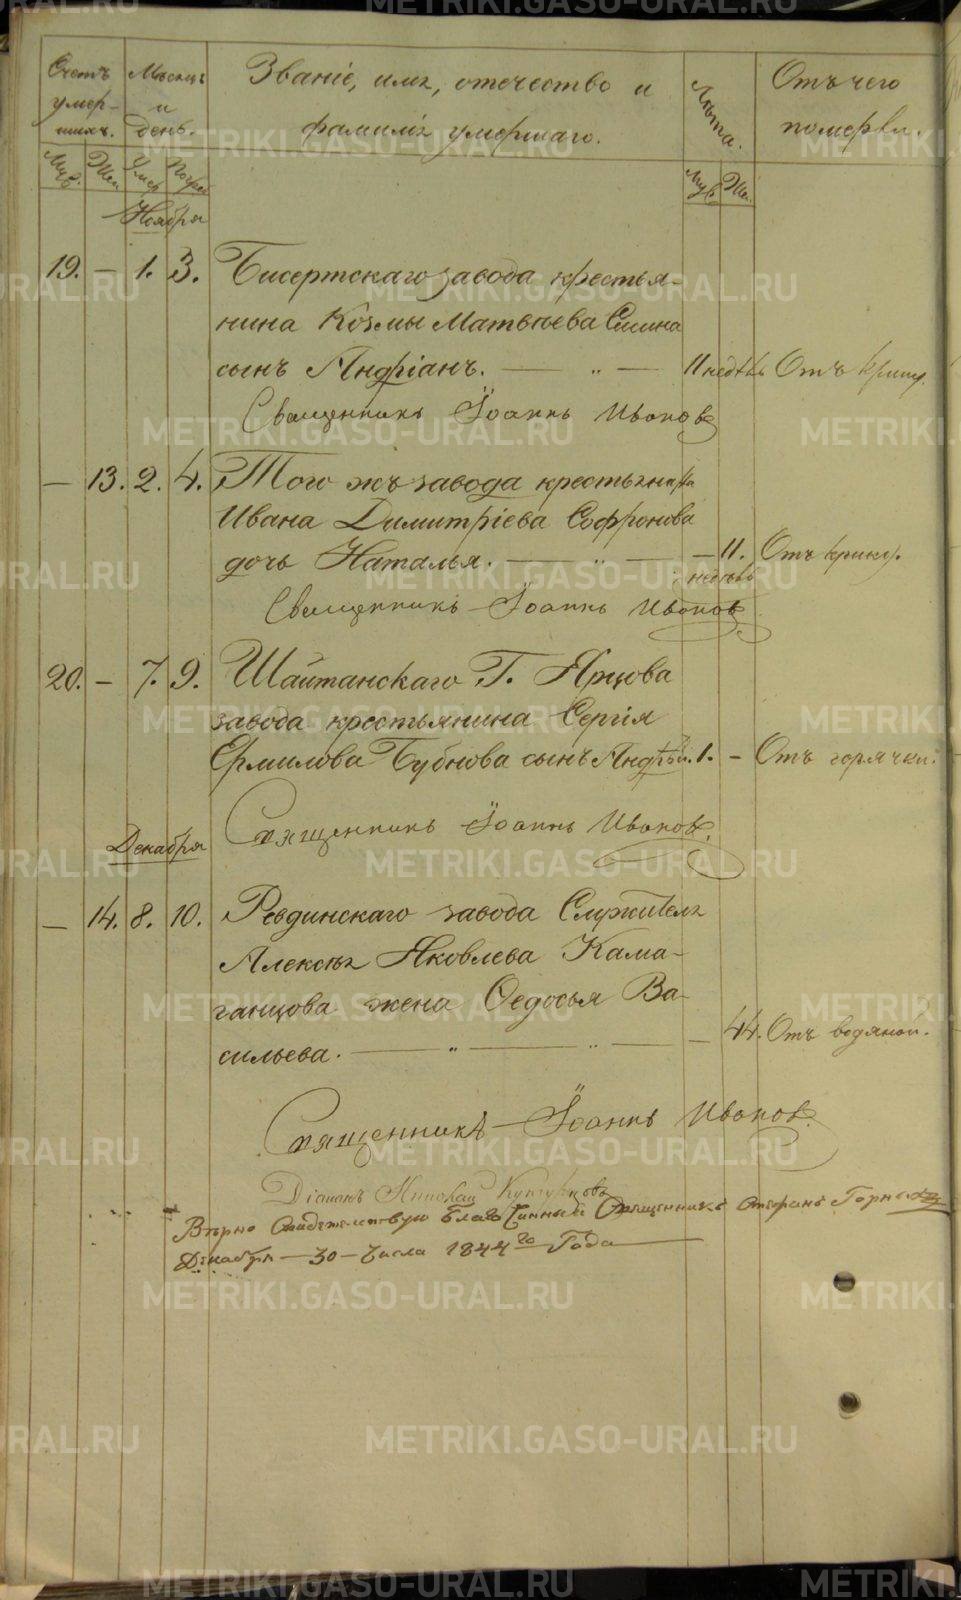 Счетъ умер- шихъ. Мѣсяцъ и день. Званіе, имя, отечество и фамилія умершаго. Лѣта. Отъ чего померли.
Муж. Жен. Умер. Погреб. Муж. Жен.
Ноября
19. — 1. 3. Бисертскаго завода крестья-
нина Козмы Матвѣева Сиина
сынъ Андріанъ. — „ — 11 недѣль Отъ крику.
Священникъ Іоаннъ Ивонов
— 13. 2. 4. Того жъ завода крестьянина
Ивана Димитріева Софронова
дочь Наталья. — „ — — 11. Отъ крику.
недѣль
Священникъ Іоаннъ Ивонов
20. — 7. 9. Шайтанскаго Г. Ярцова
завода крестьянина Сергія
Ермилова Бубнова сынъ Андрей. 1. — Отъ горячки.
Священникъ Іоаннъ Ивонов.
Декабря
— 14. 8. 10. Ревдинскаго завода Служителя
Алексѣя Яковлева Кама-
ганцова жена Ѳедосья Ва-
сильева. — „ — „ — — 44. Отъ водяной.
Священникъ Іоаннъ Ивонов.
Діаконъ Николай
Вѣрно Свидетельствую Благочинный Священникъ Стефанъ
Декабря — 30 — Числа 1844го Года
METRIKI.GASO-URAL.RU